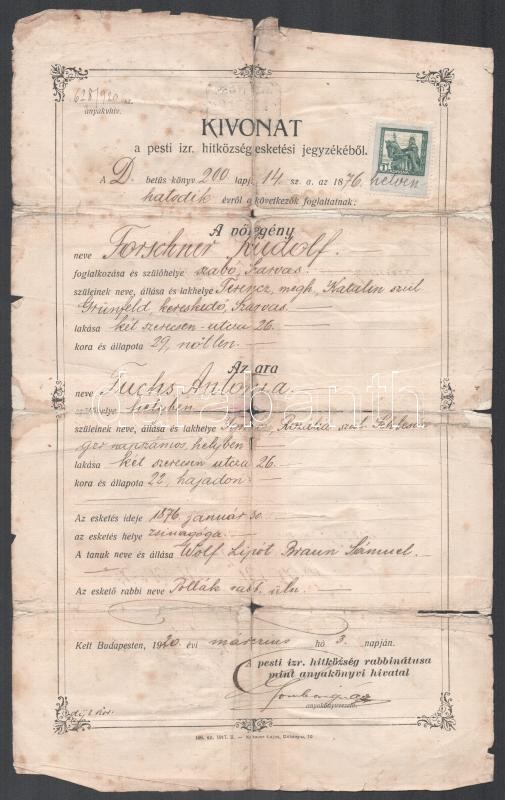 628/920 sz.
anyakvhiv.
KIVONAT
a pesti izr. hitközség esketési jegyzékéből.
A D. betüs könyv 200 lapj. 14 sz. a. az 1876. hetven
hatodik évről a következők foglaltatnak:
A vőlegény
neve Forschner Rudolf.
foglalkozása és szülőhelye szabó, Szarvas.
szüleinek neve, állása és lakhelye Ferencz, megh, Katalin szül
Grünfeld, kereskedő, Szarvas.
lakása két szerecsen-utcza 26.
kora és állapota 29, nőtlen.
Az ara
neve Fuchs Antónia.
helyben
szüleinek neve, állása és lakhelye Rozália szül.
napszámos, helyben
lakása két szerecsen utcza 26.
kora és állapota 22, hajadon.
Az esketés ideje 1876. január 30.
az esketés helye zsinagóga.
A tanuk neve és állása Wolf Lipót Braun Sámuel.
Az eskető rabbi neve Pollák
Kelt Budapesten, 1920. évi március hó 3. napján.
a pesti izr. hitközség rabbinátusa
mint anyakönyvi hivatal
anyakönyvvezető
darabanth